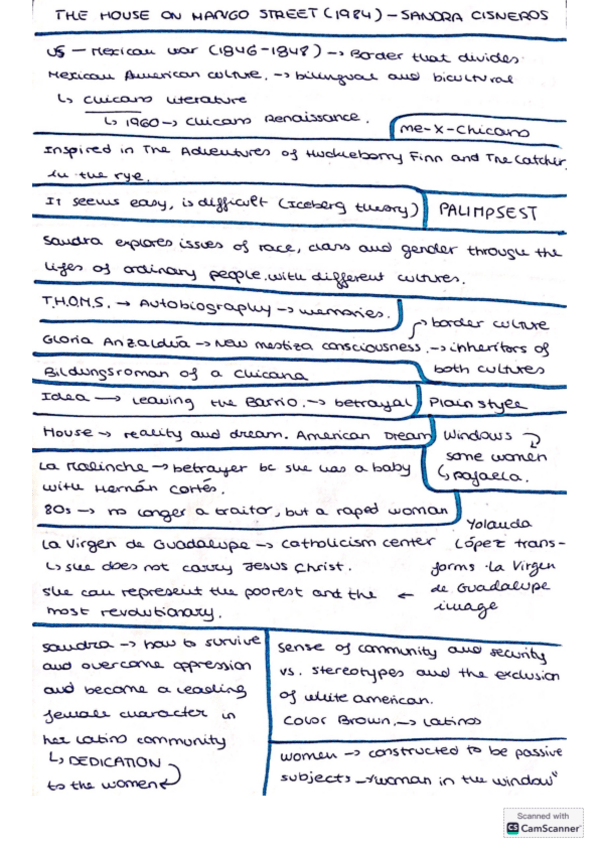 THE HOUSE ON MANGO STREET (1984) - SANDRA CISNEROS
US - Mexican war (1846-1848) -> Border that divides
Mexican American culture. -> bilingual and bicultural
↳ chicano literature
↳ 1960 -> chicano Renaissance.
me-x-chicano
Inspired in The Adventures of Huckleberry Finn and The Catcher
in the rye.
It seems easy, is difficult (Iceberg theory)
PALIMPSEST
Sandra explores issues of race, class and gender through the
lifes of ordinary people, with different cultures.
T.H.O.M.S. -> Autobiography -> memories.
Gloria Anzaldúa -> New mestiza consciousness. -> inheritors of
both cultures
border culture
Bildungsroman of a chicana
Idea -> leaving the Barrio. -> betrayal
Plain style
House -> reality and dream. American Dream
Windows
some women
↳ pajaela.
La Malinche -> betrayer bc she was a baby
with Hernán Cortés.
80s -> no longer a traitor, but a raped woman
La Virgen de Guadalupe -> catholicism center
↳ she does not carry Jesus Christ.
She can represent the poorest and the ←
most revolutionary.
Yolanda
López trans-
forms la Virgen
de Guadalupe
image
Sandra -> how to survive
and overcome oppression
and become a leading
female character in
her latino community
↳ DEDICATION
to the women
sense of community and security
vs. stereotypes and the exclusion
of white american.
Color Brown. -> latinos
women -> constructed to be passive
subjects -> "woman in the window"
Scanned with
CS CamScanner